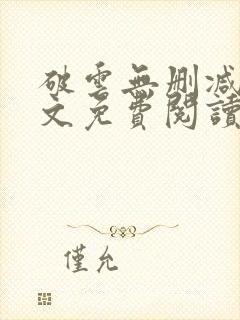 破雲無刪減
文免費閱讀
僅允